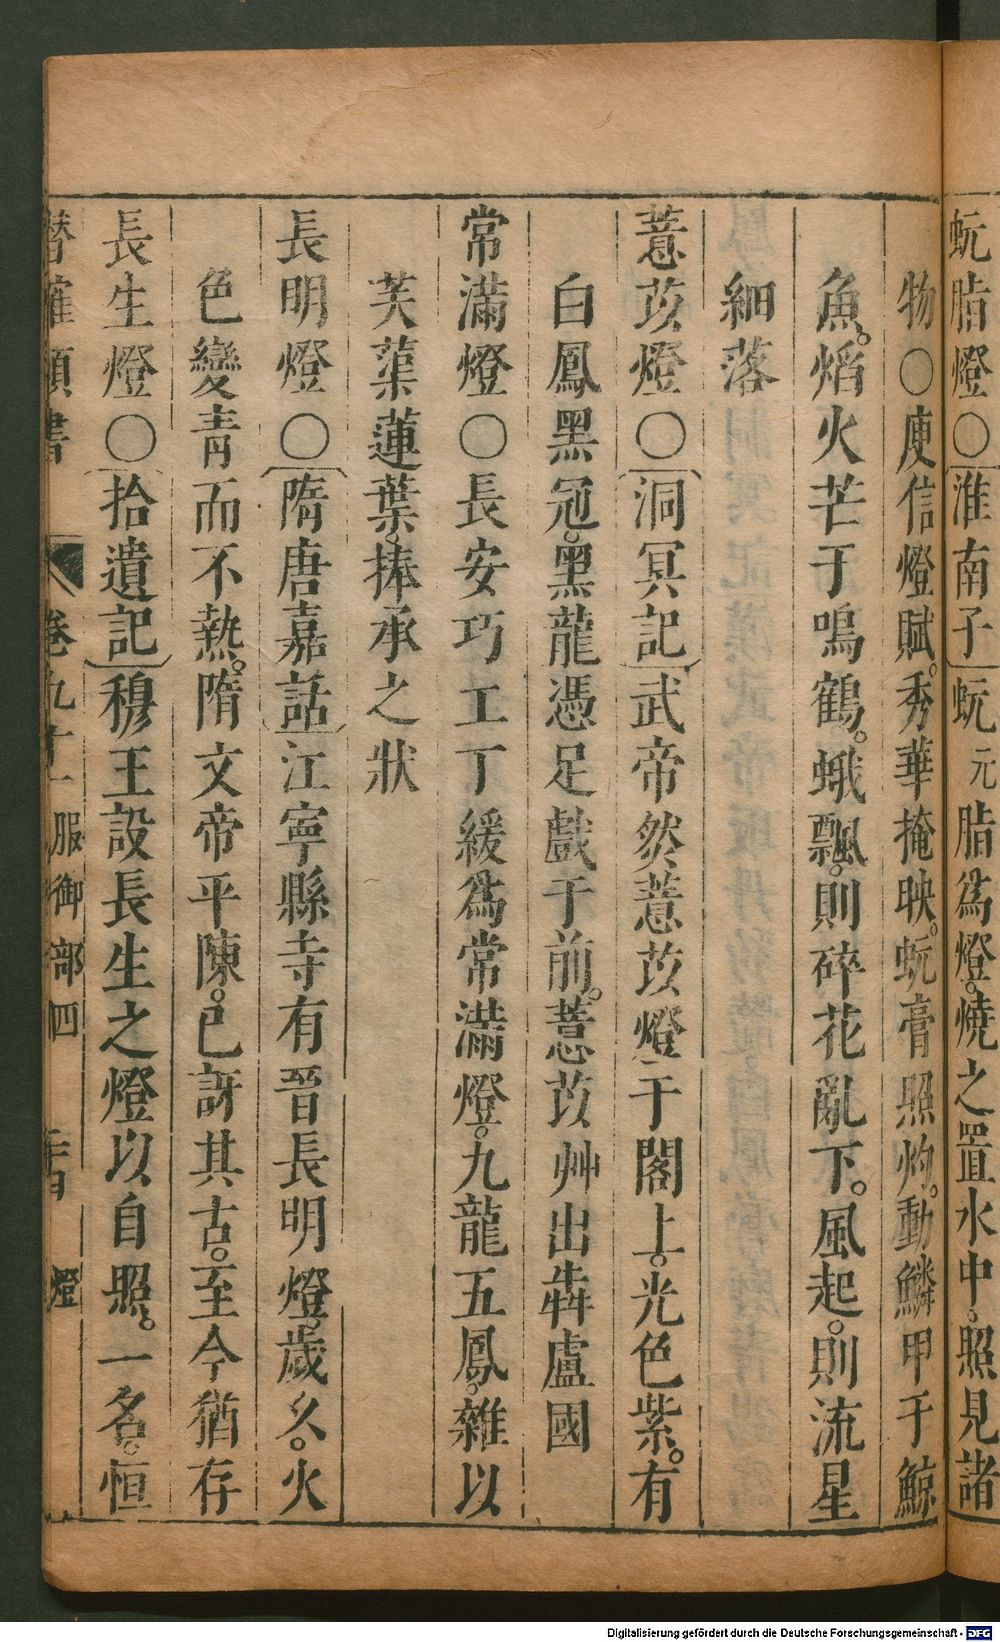 蚖脂燈○淮南子蚖元脂爲燈。燒之置水中。照見諸
物○庾信燈賦。秀華掩映。蚖膏照灼。動鱗甲于鯨
魚。焰火芒于鳴鶴。蛾飄。則碎花亂下。風起。則流星
細落
薏苡燈○洞冥記武帝然薏苡燈于閣上。光色紫。有
白鳳黑冠。黑龍憑足戲于前。薏苡艸出犇盧國
常滿燈○長安巧工丁緩爲常滿燈。九龍五鳳。雜以
芙蕖蓮葉。捧承之狀
長明燈○隋唐嘉話江寧縣寺有晉長明燈。歲久。火
色變青而不熱。隋文帝平陳。已訝其古。至今猶存
長生燈○拾遺記穆王設長生之燈以自照。一名。恒
類書 卷九十一 服御部四 燈
Digitalisierung gefördert durch die Deutsche Forschungsgemeinschaft - DFG